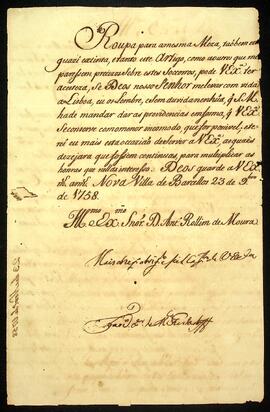 Roupa para a mesma Meza, tambem está
quazi extinta, e tanto este Artigo, como os outros que me
parecem precizos sobre estes Socorros, pode VEx.ª ter
a certeza, se Deos nosso Senhor me levar com vida
a Lisboa, eu os lembre, e sem duvida nenhũa, q̃ S. Mg.
hade mandar dar as providencias em forma, q̃ VEx.ª
Se concerve com o menor incomodo, que for possivel, e te-
rei eu mais esta occazião de Servir a VEx.ª, as quaes
dezejára que fossem continuas, para multiplicar as
honras que Deos guarde a VEx.ª
m. ann. Nova Villa de Barcellos 23 de 9.bro
de 1758.
Ill.mo e Ex.mo Snõr D. Ant. Rollim de Moura
de VEx.ª
Fran.co de M.ça Furtado